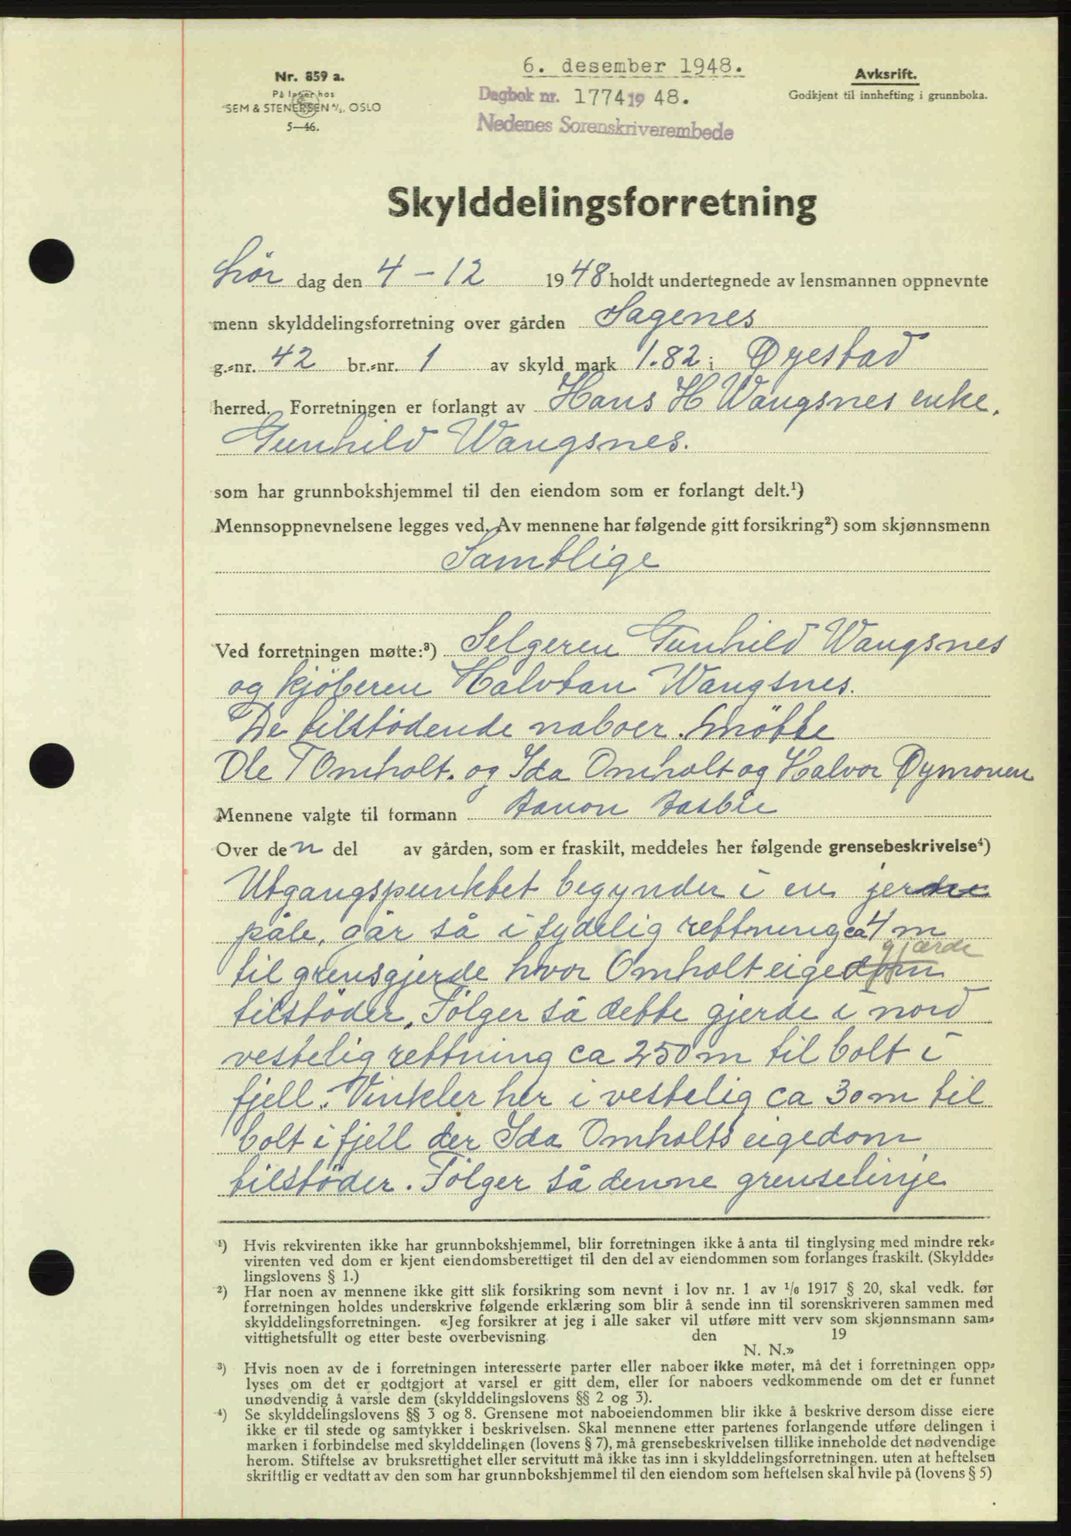 Nr. 859 a.
På lager hos
SEM & STENERSEN A/S. OSLO
5—46.
6. desember 1948.
Dagbok nr. 1774 1948.
Nedenes Sorenskriverembede
Avksrift.
Godkjent til innhefting i grunnboka.
Skylddelingsforretning
Lör dag den 4 - 12 1948 holdt undertegnede av lensmannen oppnevnte
menn skylddelingsforretning over gården Sagenes
g.-nr. 42 br.-nr. 1 av skyld mark 1.82 i Øyestad
herred. Forretningen er forlangt av Hans H Wangsnes enke.
Gunhild Wangsnes.
som har grunnbokshjemmel til den eiendom som er forlangt delt.¹)
Mennsoppnevnelsene legges ved. Av mennene har følgende gitt forsikring²) som skjønnsmenn
Samtlige
Ved forretningen møtte:³) Selgeren Gunhild Wangsnes
og kjöberen Halvtan Wangsnes.
De tilstödende naboer. mötte
Ole T Omholt. og Ida Omholt og Halvor Öymoren
Mennene valgte til formann Aanon Aasbie
Over den del av gården, som er fraskilt, meddeles her følgende grensebeskrivelse⁴)
Utgangspunktet begynder i en jerde
påle, går så i sydelig rettning ca 4 m
gjærde
til grensgjerde hvor Omholt eigedom
tilstöder. Fölger så dette gjerde i nord
vestelig rettning ca 250 m til bolt i
fjell. Vinkler her i vestelig ca 30 m til
bolt i fjell der Ida Omholts eigedom
tilstöder. Fölger så denne grenselinje
¹) Hvis rekvirenten ikke har grunnbokshjemmel, blir forretningen ikke å anta til tinglysing med mindre rek-
virenten ved dom er kjent eiendomsberettiget til den del av eiendommen som forlanges fraskilt. (Skyldde-
lingslovens § 1.)
²) Har noen av mennene ikke gitt slik forsikring som nevnt i lov nr. 1 av 1/6 1917 § 20, skal vedk. før
forretningen holdes underskrive følgende erklæring som blir å sende inn til sorenskriveren sammen med
skylddelingsforretningen. «Jeg forsikrer at jeg i alle saker vil utføre mitt verv som skjønnsmann sam-
vittighetsfullt og etter beste overbevisning den 19
N. N.»
³) Hvis noen av de i forretningen interesserte parter eller naboer ikke møter, må det i forretningen opp-
lyses om det er godtgjort at varsel er gitt dem, eller for naboers vedkommende om det er funnet
unødvendig å varsle dem (skylddelingslovens §§ 2 og 3).
⁴) Se skylddelingslovens §§ 3 og 8. Grensene mot naboeiendommen blir ikke å beskrive dersom disse eiere
ikke er til stede og samtykker i beskrivelsen. Skal mennene etter partenes forlangende utføre delingen i
marken i forbindelse med skylddelingen (lovens § 7), må grensebeskrivelsen tillike inneholde det nødvendige
herom. Stiftelse av bruksrettighet eller servitutt må ikke tas inn i skylddelingsforretningen. uten at heftelsen
skriftlig er vedtatt av den som har grunnbokshjemmel til den eiendom som heftelsen skal hvile på (lovens § 5)